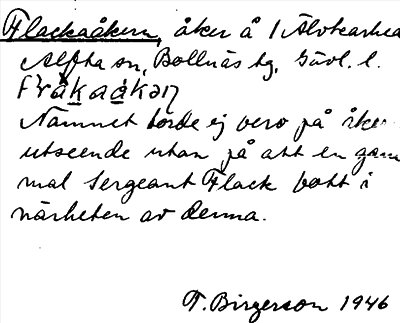 Flackaåkern, åker å 1 Älvkarhed
Alfta sn, Bollnäs tg, Gävl. l.
Namnet torde ej vero på åkerns
utseende utan på att en gam
mal sergeant Flack bott i
närheten av denna.
T. Birgerson 1946